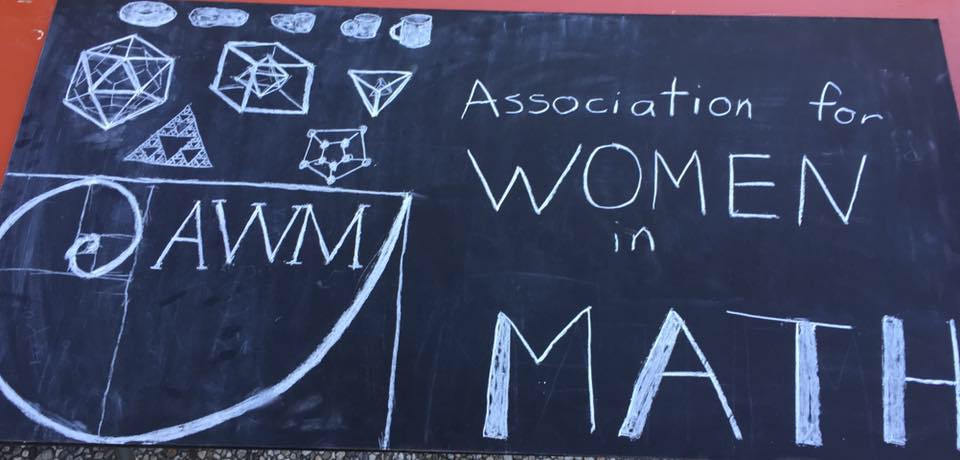 AWM
Association for
WOMEN
in
MATH